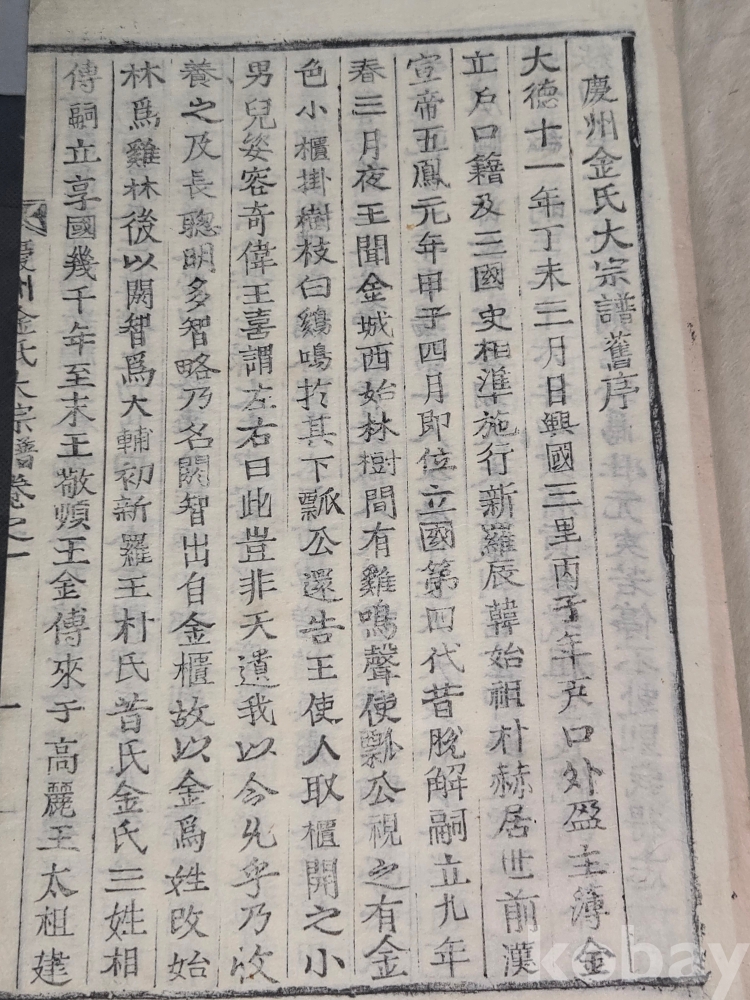 慶州金氏大宗譜舊序
大德十一年丁未三月日興國三里丙子年戶口外盈主簿金
立戶口籍及三國史相準施行新羅辰韓始祖朴赫居世前漢
宣帝五鳳元年甲子四月即位立國第四代昔脫解嗣立九年
春三月夜王聞金城西始林樹間有雞鳴聲使瓢公視之有金
色小櫃掛樹枝白鷄鳴於其下瓢公還告王使人取櫃開之小
男兒姿容奇偉王喜謂左右曰此豈非天遺我以令允乎乃收
養之及長聰明多智略乃名閼智出自金櫃故以金爲姓改始
林爲雞林後以閼智爲大輔初新羅王朴氏昔氏金氏三姓相
傳嗣立享國幾千年至末王敬順王金傅來于高麗王太祖建
慶州金氏大宗譜卷之一
一
kobay